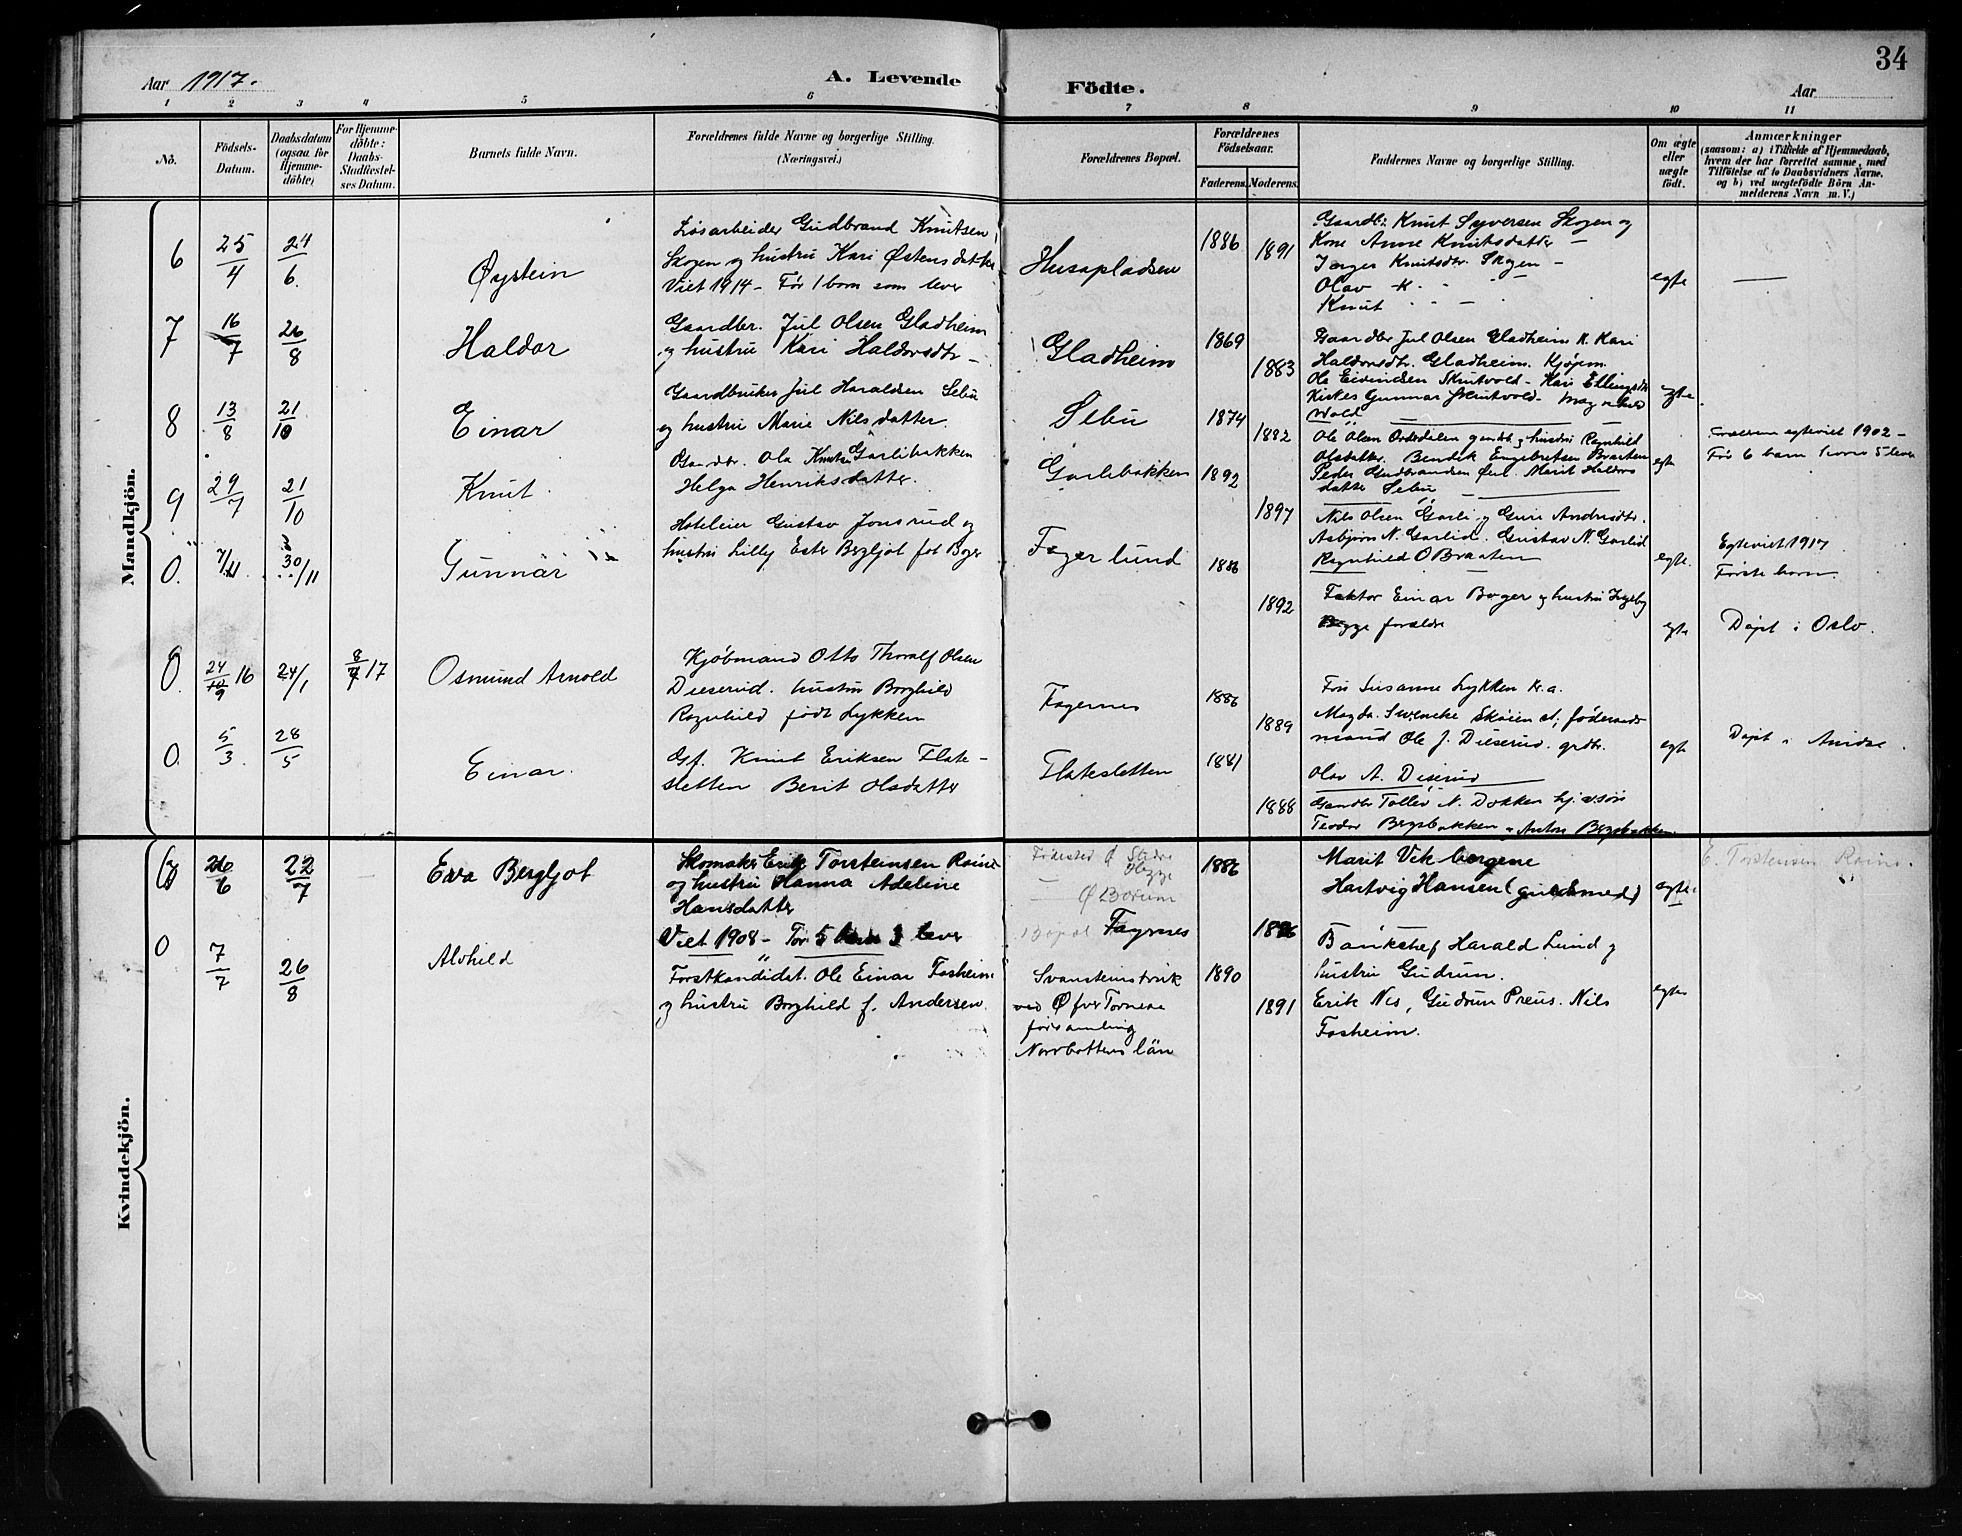 34
Aar 1917.
A. Levende
Födte.
Aar
1 2 3 4 5 6 7 8 9 10 11
No.
Födsels-Datum.
Daabsdatum (ogsaa for Hjemme-döbte)
For Hjemme-döbte: Daabs-Stadfæstel-ses Datum.
Barnets fulde Navn.
Forældrenes fulde Navne og borgerlige Stilling. (Næringsvei.)
Forældrenes Bopæl.
Forældrenes Födselsaar.
Faderens. Moderens.
Faddernes Navne og borgerlige Stilling.
Om ægte eller uægte födt.
Anmærkninger
(saasom: a) i Tilfælde af Hjemmedaab,
hvem der har forrettet samme, med
Tilföielse af to Daabsvidners Navne.
og b) ved uægtefödte Börn An-
melderens Navn m. V.)
Mandkjön.
6 25/4 24/6 Øystein
Løsarbeider Gudbrand Knutsen
Skogen og hustru Kari Østensdatter
Viet 1914 - Før 1 barn som lever
Husapladsen 1886 1891
Gaardbr. Knut Syversen Skogen og
Kone Anne Knutsdatter -
Knutsdtr. Skogen -
Olav K.
Knut
egte
7 16/7 26/8 Haldor
Gaardbr. Jul Olsen Gladheim
og hustru Kari Haldorsdtr -
Gladheim 1869 1883
Gaardbr Jul Olsen Gladheim K. Kari
Haldorsdtr. Gladheim.
Ole Eivindsen Skutvold - Kari Ellingsdtr
Gunnar Skutvold -
Wold
egte
8 13/8 21/10 Einar
Gaardbruker Jul Haraldsen Sebu
og hustru Marie Nilsdatter.
Sebu 1874 1882
Ole Olsen og hustru Ragnhild
Olsdatter. Bendik Engebretsen Braaten
Peder Gudbrandsen Marit Haldors
datter Sebu
egte
egteviet 1902 -
Før 6 barn 5 lever
9 29/7 21/10 Knut.
Gaardbr. Ola Knutsen Garlibakken
Helga Henriksdatter.
Garlibakken 1892 1897
Nils Olsen Garli og Guri Andrisdtr.
Asbjørn N. Garlid. Gustav N. Garlid
Ragnhild O Braaten
egte.
Egteviet 1917
Første barn.
0. 7/11 30/11 Gunnar
Hoteleier Gustav Jonsrud og
hustru Lilly Ester Bergljot fot Boger
Fagerlund 1886 1892
Faktor Einar Boger og hustru
Begge forældre
egte
Døpt i Oslo.
0. 24/9 16 24/1 8/7 17
Osmund Arnold
Kjøbmand Otto Thoralf Olsen
Dieserud. hustru Borghild
Ragnhild født Lykken
Fagernes 1886 1889
Susanne Lykken K.a.
Magda. Skøien st; føderaads
mand Ole J. Dieserud. grdbr.
Olav A. Diserud
egte
Døpt i
0. 5/3 28/5 Einar.
Gf. Knut Eriksen Flate-
sletten Berit Olsdatter
Flatesletten 1881 1888
Gaardbr Tollev N. Dokken
Teodor Bergsbakken Anton Bergsbakken
Kvindekjön.
26/6 22/7
Eva Bergljot
Skomaker Erik Torsteinsen
og hustru Hanna Adeline
Hansdatter
Viet 1908 - Før 5 barn 3 lever
Fødested Ø Slidre
Hegge
Ø Bærum
Bopæl Fagernes
1886
Marit Vik
Hartvig Hansen (guldsmed)
egte
0 7/7 26/8 Alvhild
Forstkandidat. Ole Einar Fosheim
og hustru Borghild f. Andersen.
Svansteinsbruk
ved Øfver Torneaa
forsamling
Norrbottens län
1890 1891
Bankchef Harald Lund og
hustru Gudrun.
Erik Nes, Gudrun Preus. Nils
Fosheim.
egte